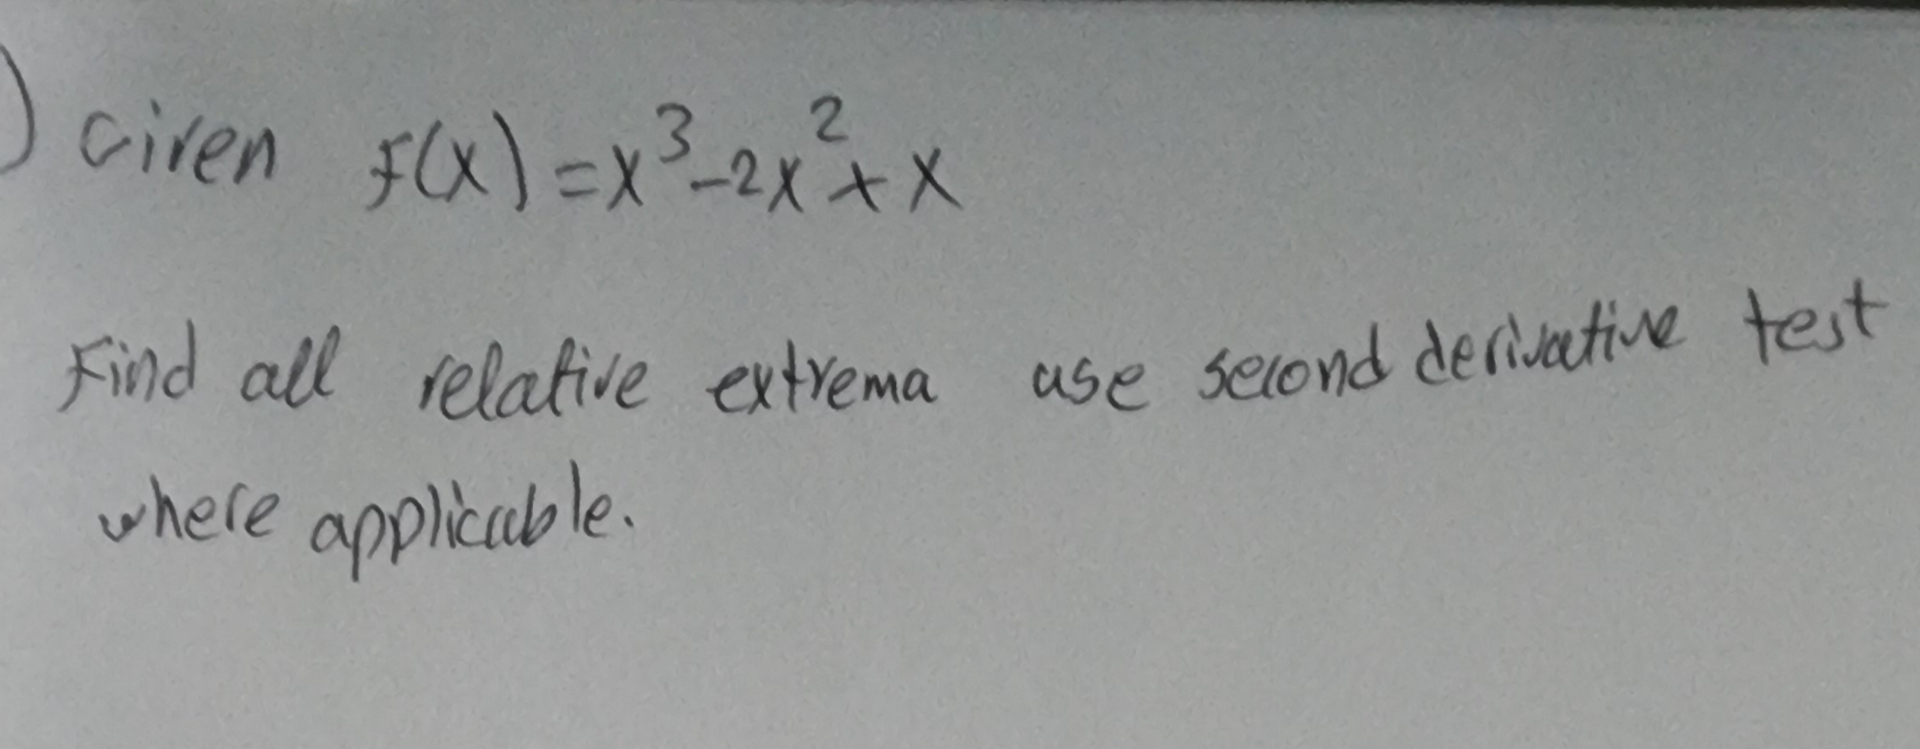 ) Given f(x) = x³ - 2x² + x
Find all relative extrema use second derivative test
where applicable.